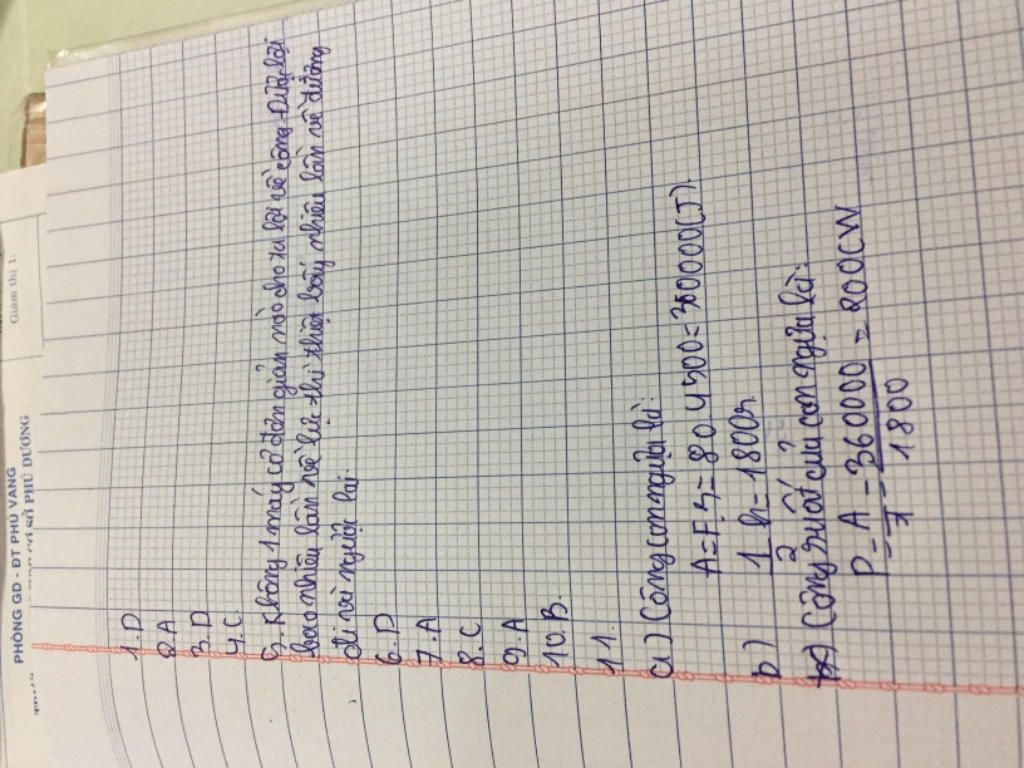 PHÒNG GD - ĐT PHÚ VANG
SỞ PHÚ DƯƠNG
Giám thị 1:
1. D
2. A
3. D
4. C.
5. Không 1 máy cơ đơn giản nào cho ta lợi về công. Được lợi
bao nhiêu lần về lực thì thiệt bấy nhiêu lần về đường
đi và ngược lại.
6. D
7. A
8. C
9. A
10. B.
11.
a) Công con ngựa là:
A = F.s = 80.4500 = 360000 (J).
b)
1/2 h = 1800s
Công suất của con ngựa là:
P = A/t = 360000/1800 = 200(W